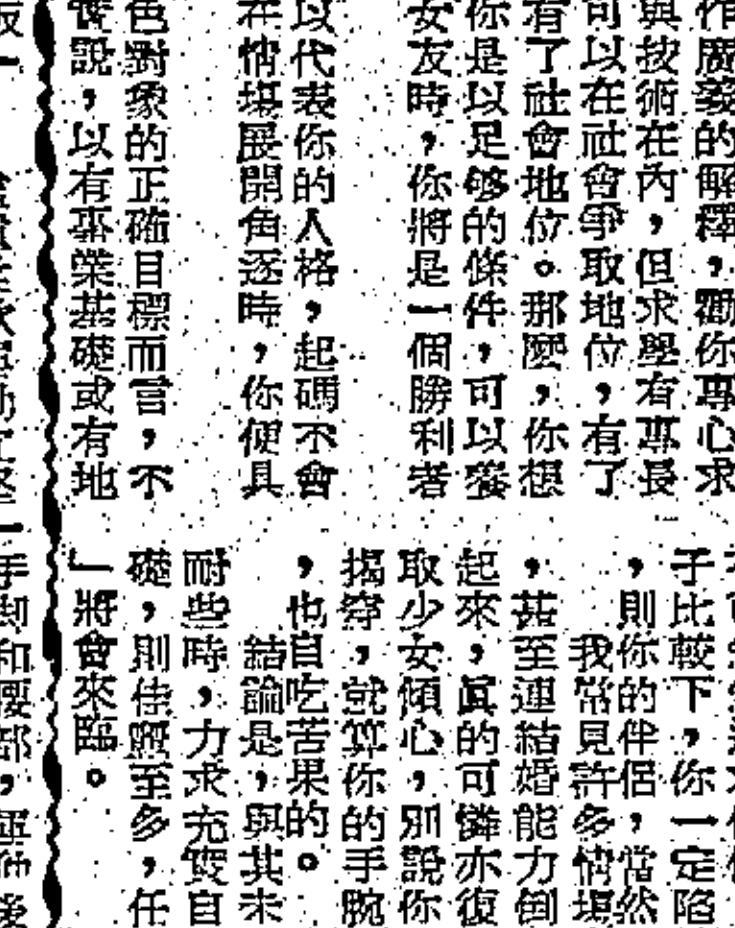 作廣義的解釋，勸你專心求
與按術在內，但求學有專長
可以在社會爭取地位，有了
有了社會地位。那麼，你想
你是以足够的條件，可以獲
女友時，你將是一個勝利者
以代表你的人格，起碼不會
在情場展開角逐時，你便具
色對象的正確目標而言，不
說，以有事業基礎或有地
子比較下，你一定陷
，則你的伴侶，當然
我常見許多情場
，甚至連結婚能力倒
起來，眞的可憐亦復
取少女傾心，別說你
揭穿，就算你的手腕
，也自吃苦果的。
結論是，與其未
耐些時，力求充實自
礎，則佳麗至多，任
」將會來臨。
手
和腰部，
後